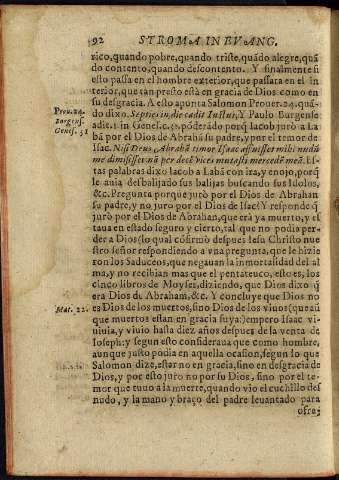 92 STROMA IN EVANG.
rico, quando pobre, quando triste, quãdo alegre, quã
do contento, quando descontento. Y finalmente si
esto passa en el hombre exterior, que passara en el in
terior, que tan presto està en gracia de Dios como en
su desgracia. A esto apunta Salomon Prouer. 24. quã-
Prou. 24.
do dixo. Septies in die cadit Iustus, Y Paulo Burgense
Burgens.
adit. 1. in Genes. c. 31. poderado porq̃ Iacob jurò a La
Genes. 31
bã por el Dios de Abrahã su padre, y por el temor de
Isac. Nisi Deus Abrahã timor Isaac affuisset mihi nudũ
me dimisisses: nã per decẽ vices mutasti mercedẽ meã. Es-
tas palabras dixo Iacob a Labã con ira, y enojo, porq̃
le auia desbalijado sus balijas buscando sus Idolos,
&c. Pregunta porque jurò por el Dios de Abrahan
su padre, y no juro por el Dios de Isac? Y responde q̃
jurò por el Dios de Abrahan, que erà ya muerto, y el
taua en estado seguro y cierto, tal que no podia per-
der a Dios (lo qual cõfirmò despues Iesu Christo nue
stro señor respondiendo a vna pregunta, que le hizie
ron los Saduceos, que negauan la inmortalidad del al
ma, y no recibian mas que el pentateuco, esto es, los
cinco libros de Moyses, diziendo, que Dios dixo q̃
era Dios de Abraham, &c. Y concluye que Dios no
Mat. 22.
es Dios de los muertos, sino Dios de los viuos (que aũ
que muertos estan en gracia suya:) empero Isaac vi-
uiuia, y viuio hasta diez años despues de la venta de
Ioseph: y segun esto consideraua que como hombre,
aunque justo podia en aquella ocasion, segun lo que
Salomon dize, estar no en gracia, sino en desgracia de
Dios, y por esto jurò no por su Dios, sino por el te-
mor que tuuo a la muerte, quando vio el cuchillo des
nudo, y la mano y braço del padre leuantado para
ofre-